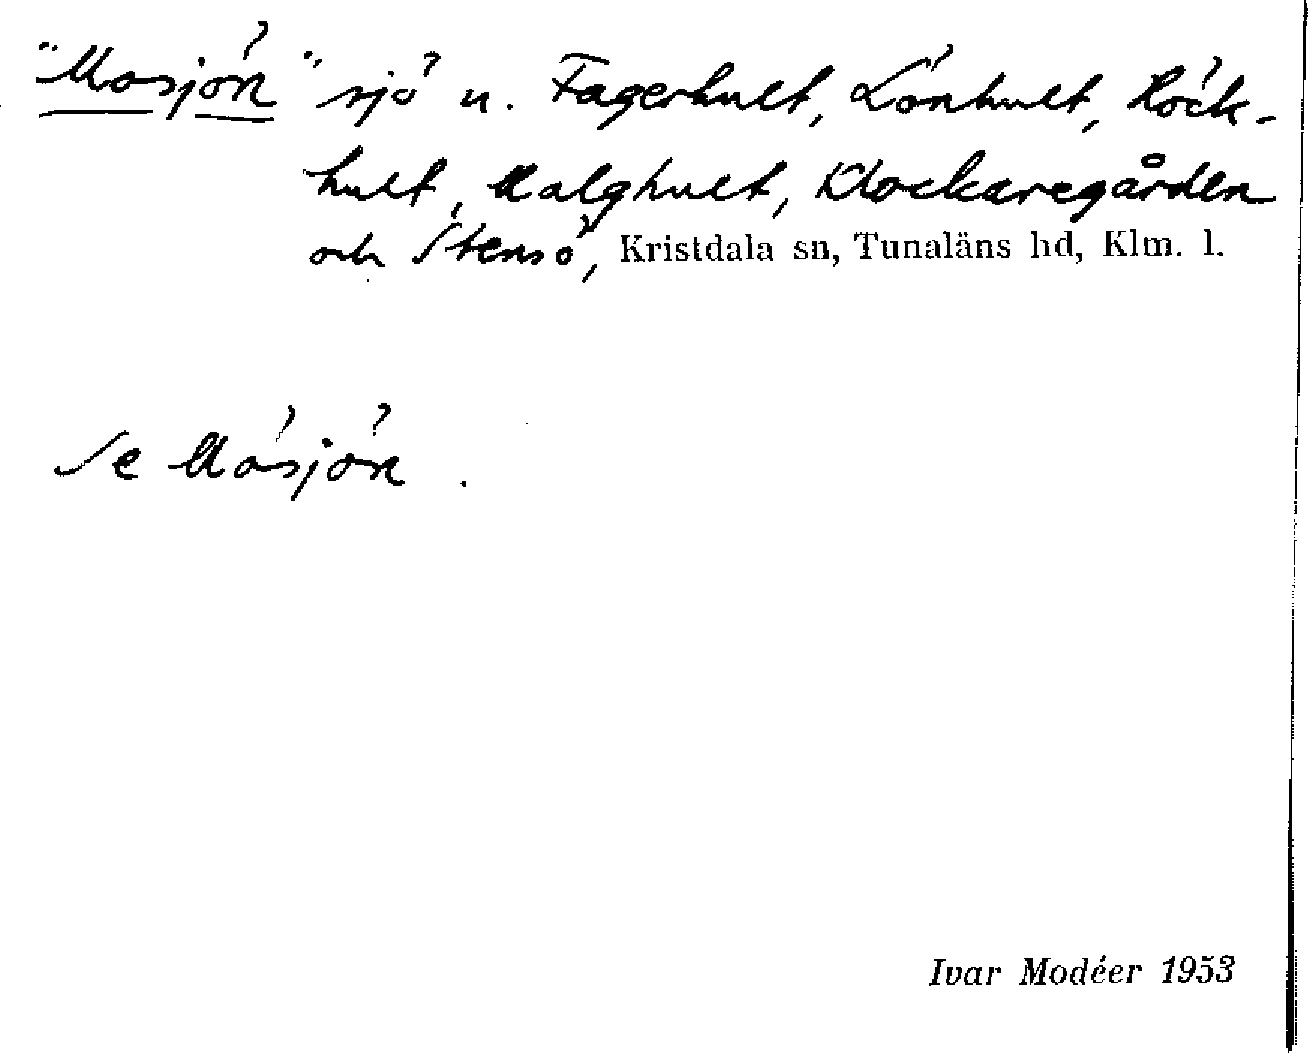 "Mosjön" sjö u. Fagerhult, Lönhult, Röck-
hult, Malghult, Klockaregården
och Stensö, Kristdala sn, Tunaläns hd, Klm. l.
Se Mösjön.
Ivar Modéer 1953